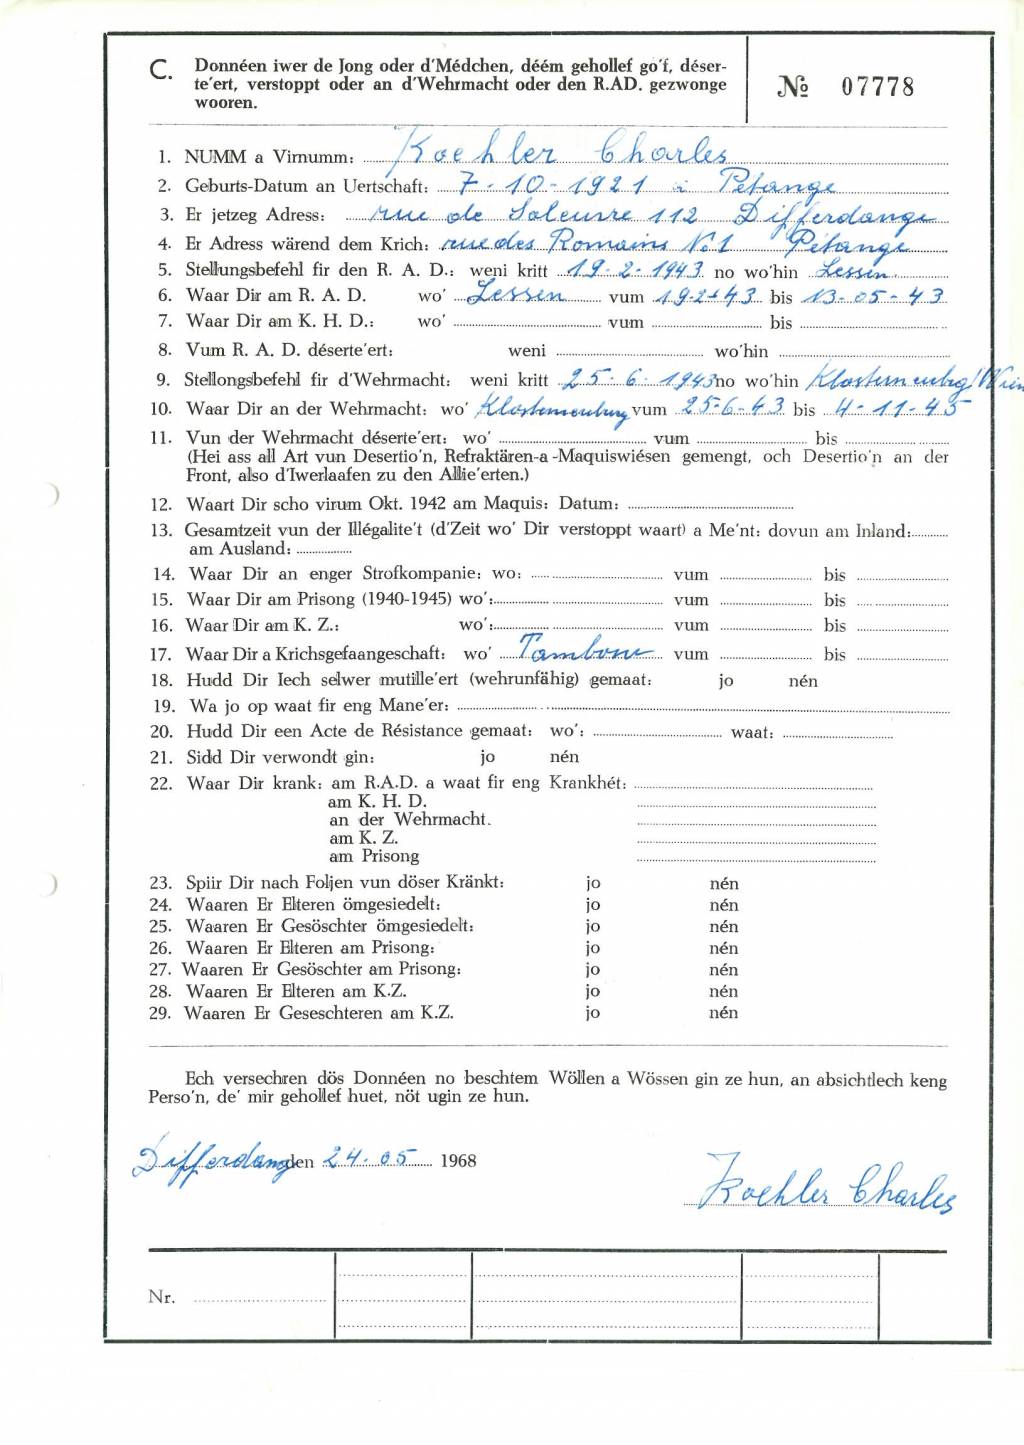 C. Donnéen iwer de Jong oder d'Médchen, déém gehollef go'f, déser-
te'ert, verstoppt oder an d'Wehrmacht oder den R.AD. gezwonge
wooren.
№ 07778
1. NUMM a Virnumm: Koehler Charles
2. Geburts-Datum an Uertschaft: 7-10-1921 à Pétange
3. Er jetzeg Adress: rue de Soleuvre 112 Differdange
4. Er Adress wärend dem Krich: rue des Romains No 1 Pétange
5. Stellungsbefehl fir den R. A. D.: weni kritt 19-2-1943 no wo'hin Lessen
6. Waar Dir am R. A. D. wo' Lessen vum 19-2-43 bis 13-05-43
7. Waar Dir am K. H. D.: wo' vum bis
8. Vum R. A. D. déserte'ert: weni wo'hin
9. Stellongsbefehl fir d'Wehrmacht: weni kritt 25-6-1943 no wo'hin Klosterneuburg/Wien
10. Waar Dir an der Wehrmacht: wo' Klosterneuburg vum 25-6-43 bis 4-11-45
11. Vun der Wehrmacht déserte'ert: wo' vum bis
(Hei ass all Art vun Desertio'n, Refraktären-a-Maquiswiésen gemengt, och Desertio'n an der
Front, also d'Iwerlaafen zu den Allie'erten.)
12. Waart Dir scho virum Okt. 1942 am Maquis: Datum:
13. Gesamtzeit vun der Illégalite't (d'Zeit wo' Dir verstoppt waart) a Me'nt: dovun am Inland:
am Ausland:
14. Waar Dir an enger Strofkompanie: wo: vum bis
15. Waar Dir am Prisong (1940-1945) wo': vum bis
16. Waar Dir am K. Z.: wo': vum bis
17. Waar Dir a Krichsgefaangeschaft: wo' Tambow vum bis
18. Hudd Dir Iech selwer mutille'ert (wehrunfähig) gemaat: jo nén
19. Wa jo op waat fir eng Mane'er:
20. Hudd Dir een Acte de Résistance gemaat: wo': waat:
21. Sidd Dir verwondt gin: jo nén
22. Waar Dir krank: am R.A.D. a waat fir eng Krankhét:
am K. H. D.
an der Wehrmacht.
am K. Z.
am Prisong
23. Spiir Dir nach Foljen vun döser Kränkt: jo nén
24. Waaren Er Elteren ömgesiedelt: jo nén
25. Waaren Er Gesöschter ömgesiedelt: jo nén
26. Waaren Er Elteren am Prisong: jo nén
27. Waaren Er Gesöschter am Prisong: jo nén
28. Waaren Er Elteren am K.Z. jo nén
29. Waaren Er Geseschteren am K.Z. jo nén
Ech versechren dös Donnéen no beschtem Wöllen a Wössen gin ze hun, an absichtlech keng
Perso'n, de' mir gehollef huet, nöt ugin ze hun.
Differdange den 24-05 1968
Koehler Charles
Nr.